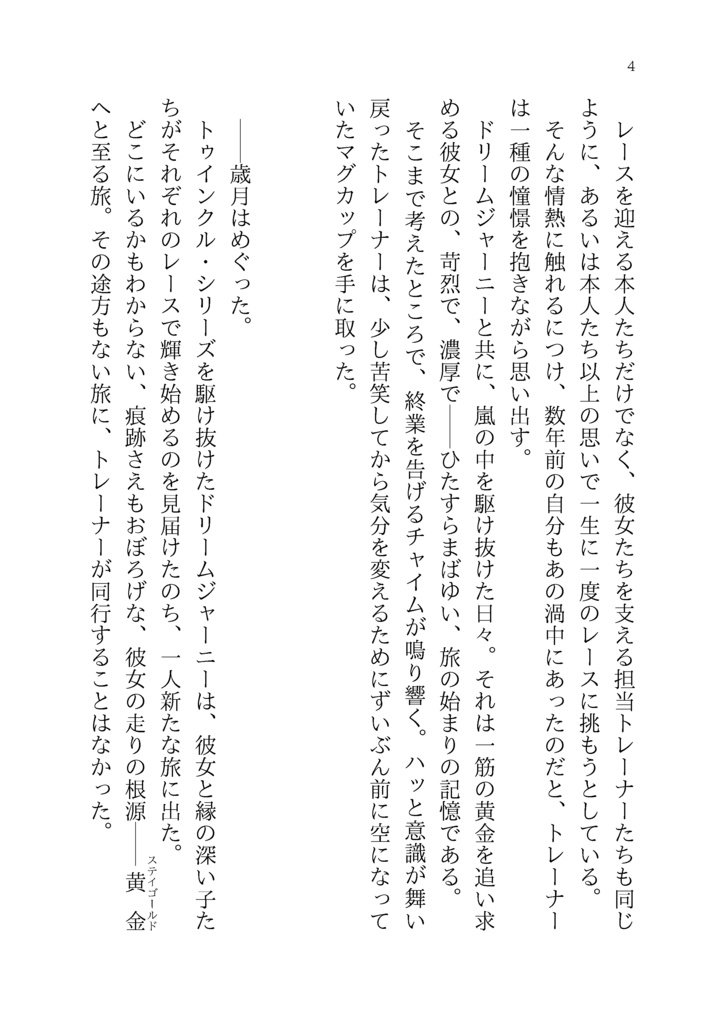 4
レースを迎える本人たちだけでなく、彼女たちを支える担当トレーナーたちも同じ
ように、あるいは本人たち以上の思いで一生に一度のレースに挑もうとしている。
そんな情熱に触れるにつけ、数年前の自分もあの渦中にあったのだと、トレーナー
は一種の憧憬を抱きながら思い出す。
ドリームジャーニーと共に、嵐の中を駆け抜けた日々。それは一筋の黄金を追い求
める彼女との、苛烈で、濃厚で――ひたすらまばゆい、旅の始まりの記憶である。
そこまで考えたところで、終業を告げるチャイムが鳴り響く。ハッと意識が舞い
戻ったトレーナーは、少し苦笑してから気分を変えるためにずいぶん前に空になって
いたマグカップを手に取った。
――歳月はめぐった。
トゥインクル・シリーズを駆け抜けたドリームジャーニーは、彼女と縁の深い子た
ちがそれぞれのレースで輝き始めるのを見届けたのち、一人新たな旅に出た。
どこにいるかもわからない、痕跡さえもおぼろげな、彼女の走りの根源――黄金
ステイゴールド
へと至る旅。その途方もない旅に、トレーナーが同行することはなかった。